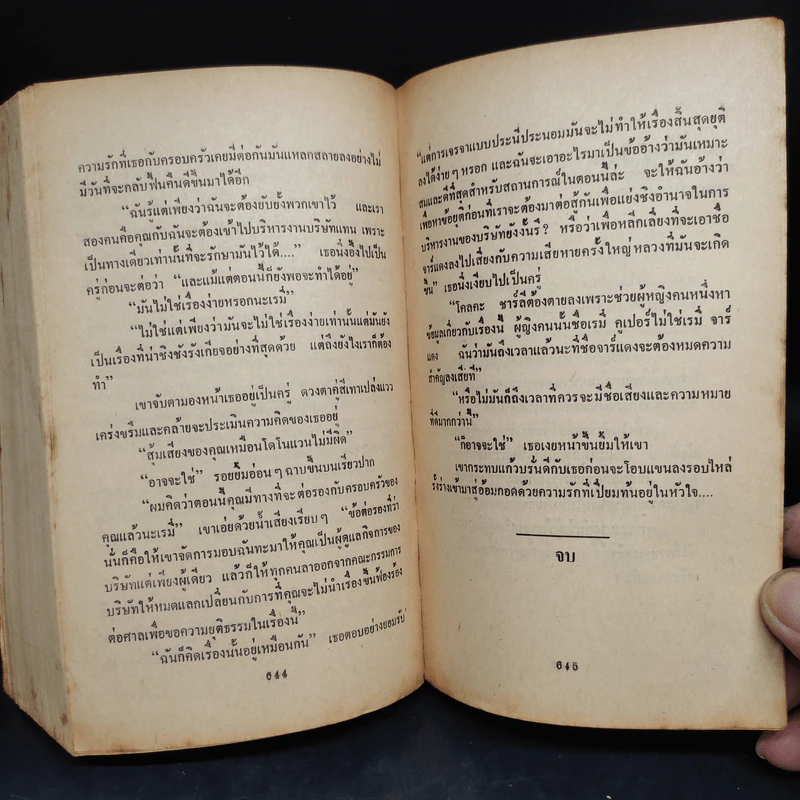 ความรักที่เธอกับครอบครัวเคยมีต่อกันมันแหลกสลายลงอย่างไม่
มีวันที่จะกลับฟื้นคืนดีขึ้นมาได้อีก
“ฉันรู้แต่เพียงว่าฉันจะต้องยับยั้งพวกเขาไว้ และเรา
สองคนคือคุณกับฉันจะต้องเข้าไปบริหารงานบริษัทแทน เพราะ
เป็นทางเดียวเท่านั้นที่จะรักษามันไว้ได้....” เธอนิ่งอึ้งไปเป็น
ครู่ก่อนจะต่อว่า “และแม้แต่ตอนนี้ก็ยังพอจะทำได้อยู่”
“มันไม่ใช่เรื่องง่ายหรอกนะเรมี่”
“ไม่ใช่แต่เพียงว่ามันจะไม่ใช่เรื่องง่ายเท่านั้นแต่มันยัง
เป็นเรื่องที่น่าชิงชังรังเกียจอย่างที่สุดด้วย แต่ถึงยังไงเราก็ต้อง
ทำ”
เขาจับตามองหน้าเธออยู่เป็นครู่ ดวงตาคู่สีเทาเปล่งแวว
เคร่งขรึมและคล้ายจะประเมินความคิดของเธออยู่
“สุ้มเสียงของคุณเหมือนโดโนแวนไม่มีผิด”
“อาจจะใช่” รอยยิ้มอ่อนๆฉาบขึ้นบนเรียวปาก
“ผมคิดว่าตอนนี้คุณมีทางที่จะต่อรองกับครอบครัวของ
คุณแล้วนะเรมี่” เขาเอ่ยด้วยน้ำเสียงเรียบๆ “ข้อต่อรองที่ว่า
นั่นก็คือให้เขาจัดการมอบฉันทะมาให้คุณเป็นผู้ดูแลกิจการของ
บริษัทแต่เพียงผู้เดียว แล้วก็ให้ทุกคนลาออกจากคณะกรรมการ
บริษัทให้หมดแลกเปลี่ยนกับการที่คุณจะไม่นำเรื่องขึ้นฟ้องร้อง
ต่อศาลเพื่อขอความยุติธรรมในเรื่องนี้”
“ฉันก็คิดเรื่องนั้นอยู่เหมือนกัน” เธอตอบอย่างยอมรับ
644
“แต่การเจรจาแบบประนีประนอมมันจะไม่ทำให้เรื่องสิ้นสุดยุติ
ลงได้ง่ายๆหรอก และฉันจะเอาอะไรมาเป็นข้ออ้างว่ามันเหมาะ
สมและดีที่สุดสำหรับสถานการณ์ในตอนนี้ล่ะ จะให้ฉันอ้างว่า
เพื่อหาข้อยุติก่อนที่เราจะต้องมาต่อสู้กันเพื่อแย่งชิงอำนาจในการ
บริหารงานของบริษัทยังงั้นรึ? หรือว่าเพื่อหลีกเลี่ยงที่จะเอาชื่อ
จาร์แดงลงไปเสี่ยงกับความเสียหายครั้งใหญ่หลวงที่มันจะเกิด
ขึ้น” เธอนิ่งเงียบไปเป็นครู่
“โคลคะ ชาร์ลีต้องตายลงเพราะช่วยผู้หญิงคนหนึ่งหา
ข้อมูลเกี่ยวกับเรื่องนี้ ผู้หญิงคนนั้นชื่อเรมี่ คูเปอร์ไม่ใช่เรมี่ จาร์
แดง ฉันว่ามันถึงเวลาแล้วนะที่ชื่อจาร์แดงจะต้องหมดความ
สำคัญลงเสียที”
“หรือไม่มันก็ถึงเวลาที่ควรจะมีชื่อเสียงและความหมาย
ที่ดีมากกว่านี้”
“ก็อาจจะใช่” เธอเงยหน้าขึ้นยิ้มให้เขา
เขากระทบแก้วบรั่นดีกับเธอก่อนจะโอบแขนลงรอบไหล่
รั้งร่างเข้ามาสู่อ้อมกอดด้วยความรักที่เปี่ยมท้นอยู่ในหัวใจ....
จบ
645